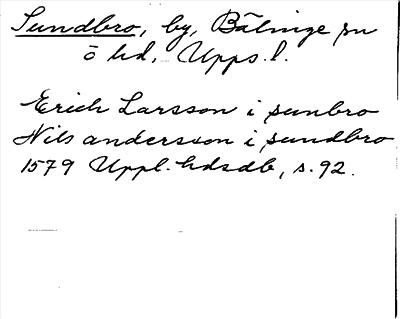 Sundbro, by, Bälinge sn
ö hd, Upps. l.
Erich Larsson i sunbro
Nils andersson i sundbro
1579 Uppl. hdsdb, s. 92.